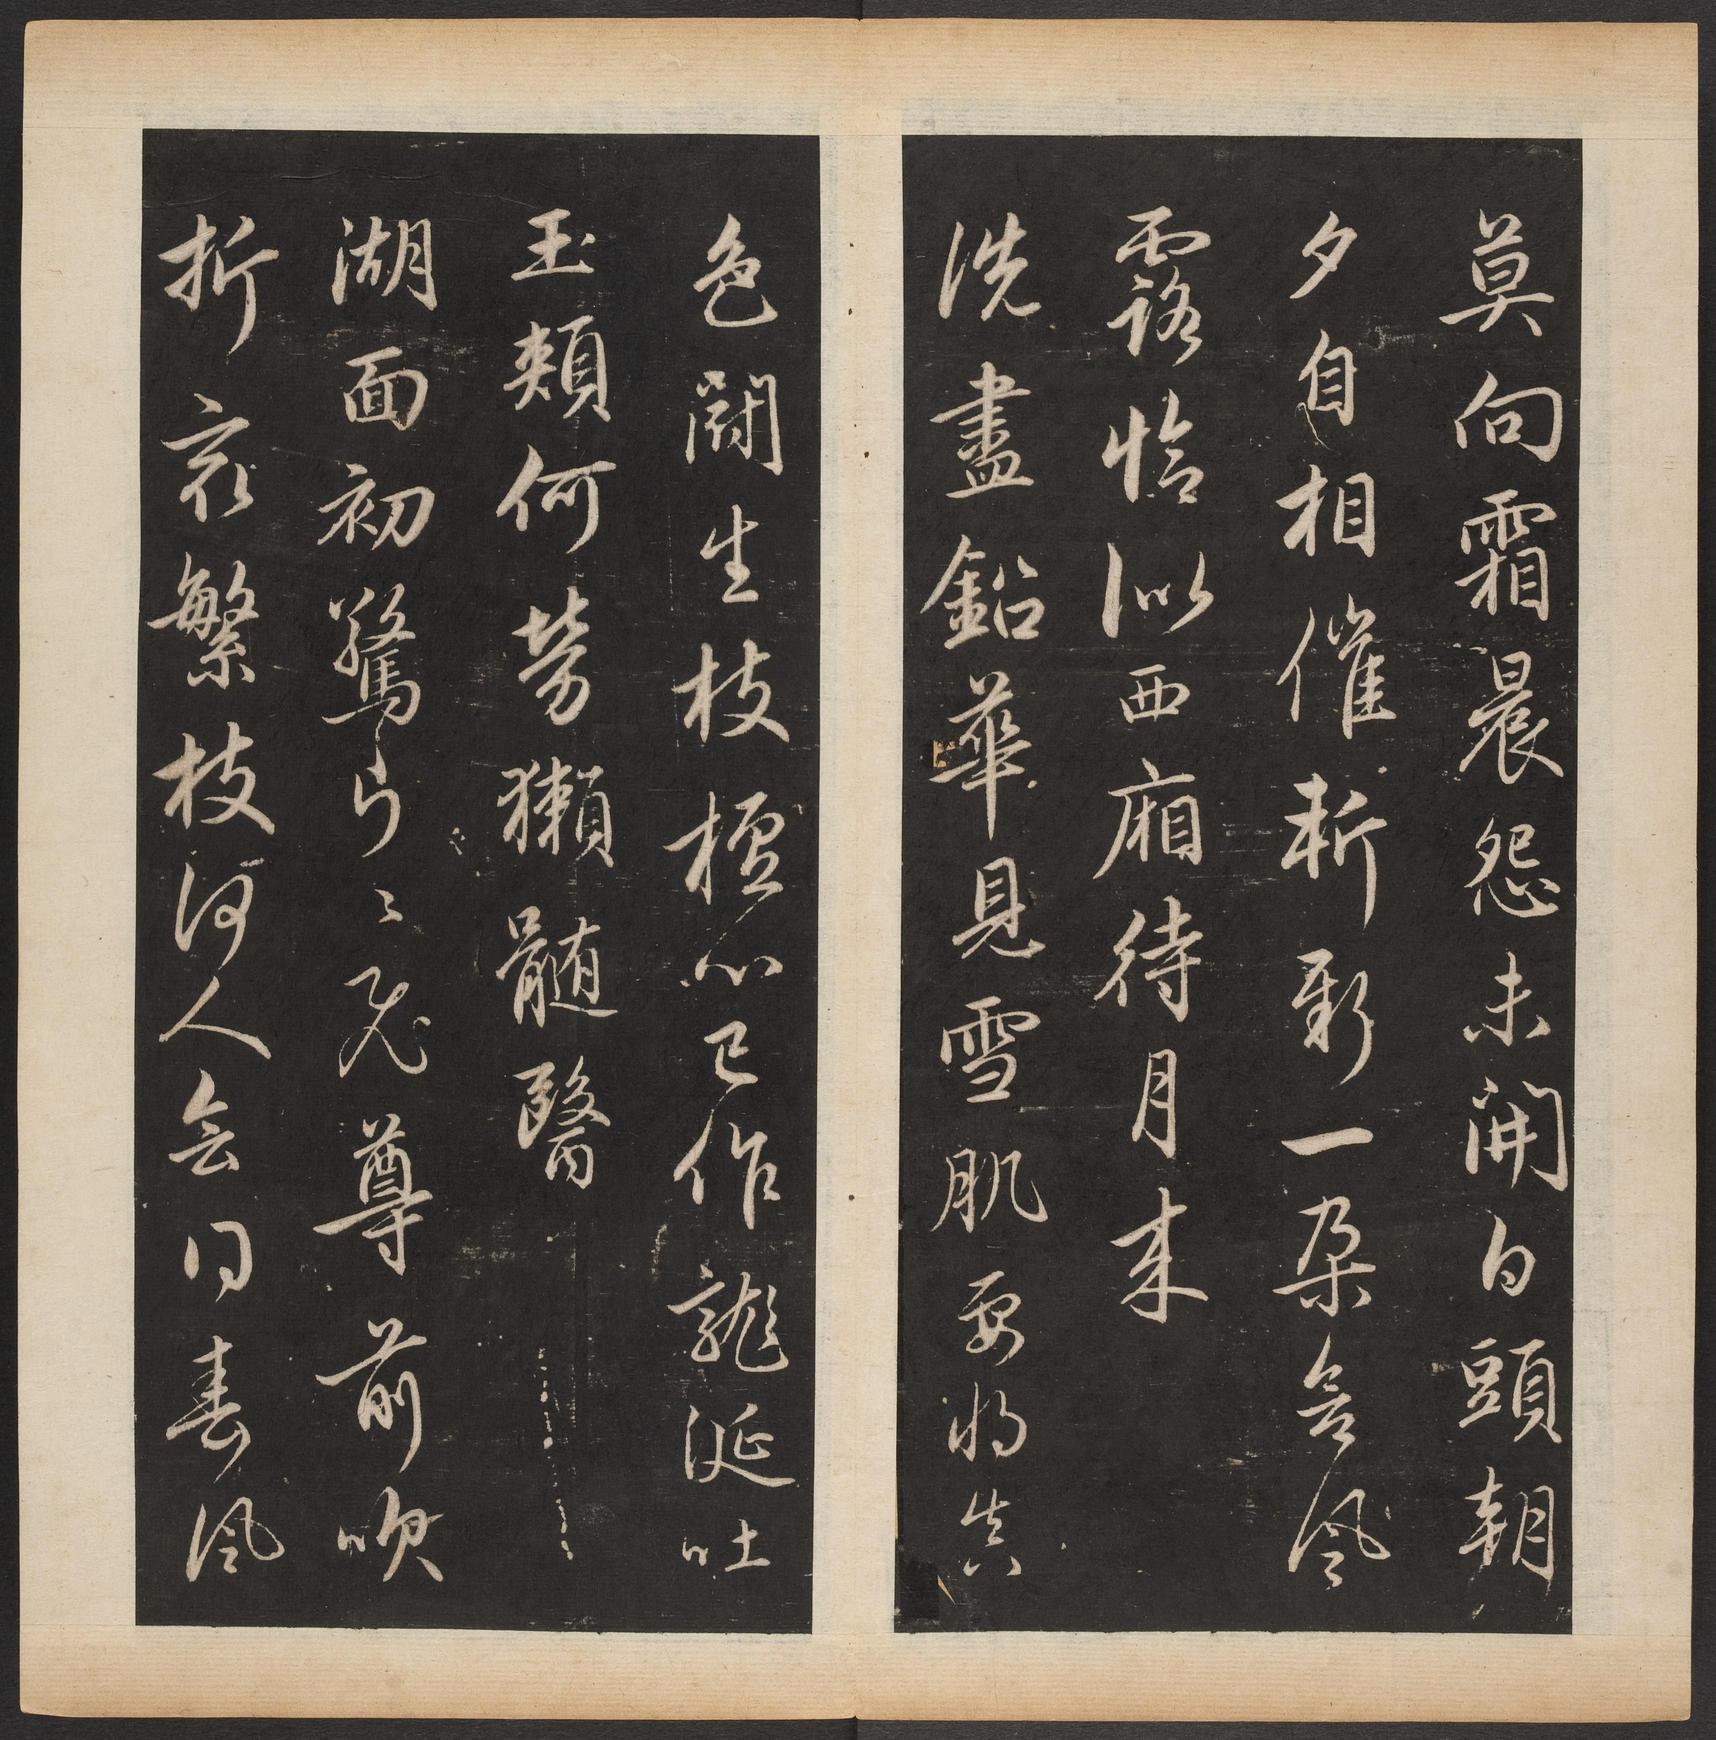 莫向霜晨怨未開白頭朝
夕自相催斬新一朶含風
露恰似西廂待月來
洗盡鉛華見雪肌要將真
色鬬生枝檀心已作龍涎吐
玉頰何勞獺髓醫
湖面初驚片〻飛尊前吹
折最繁枝何人會得春風